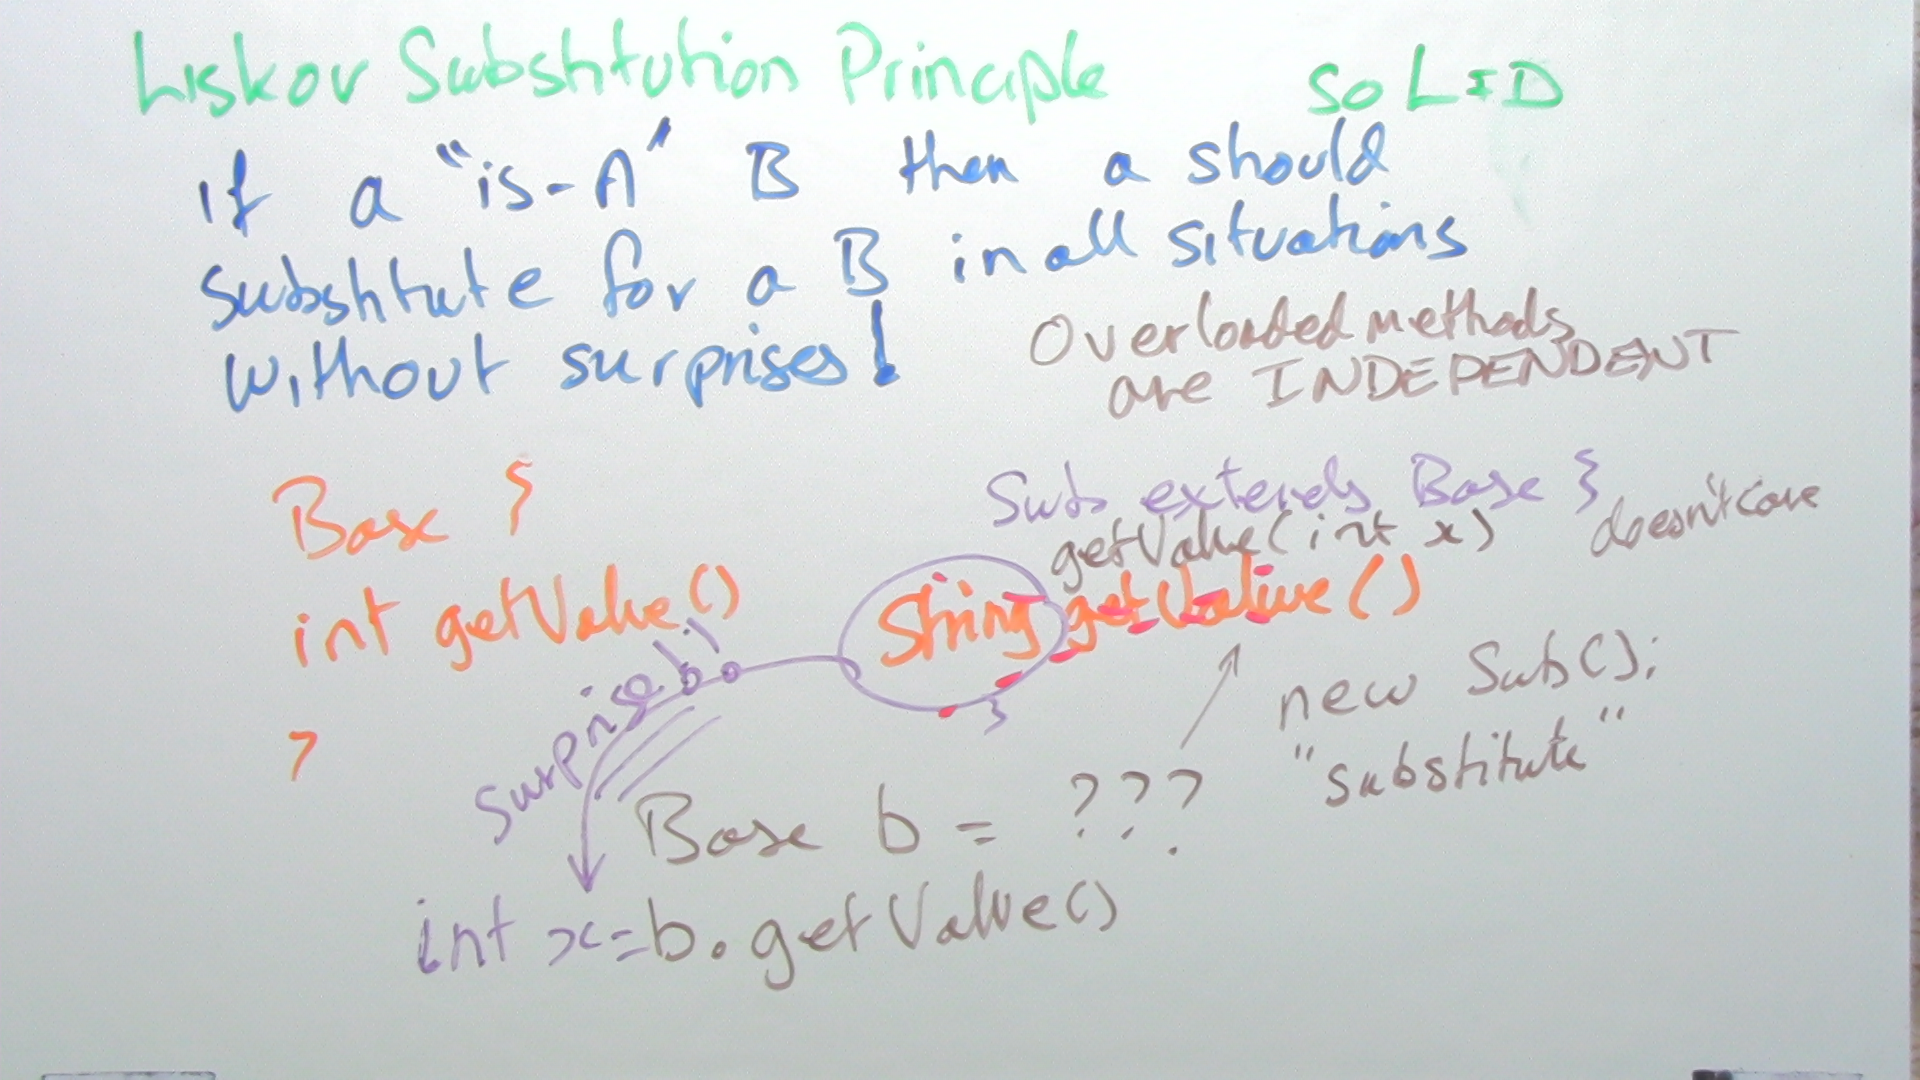 Liskov Substitution Principle SOLID
If a "is-A" B then a should
substitute for a B in all situations
without surprises!
Overloaded methods
are INDEPENDENT
Base {
int getValue()
}
Sub extends Base {
getValue(int x) doesn't care
String getValue()
}
surprise!!
new Sub();
"substitute"
Base b = ???
int x=b.getValue()